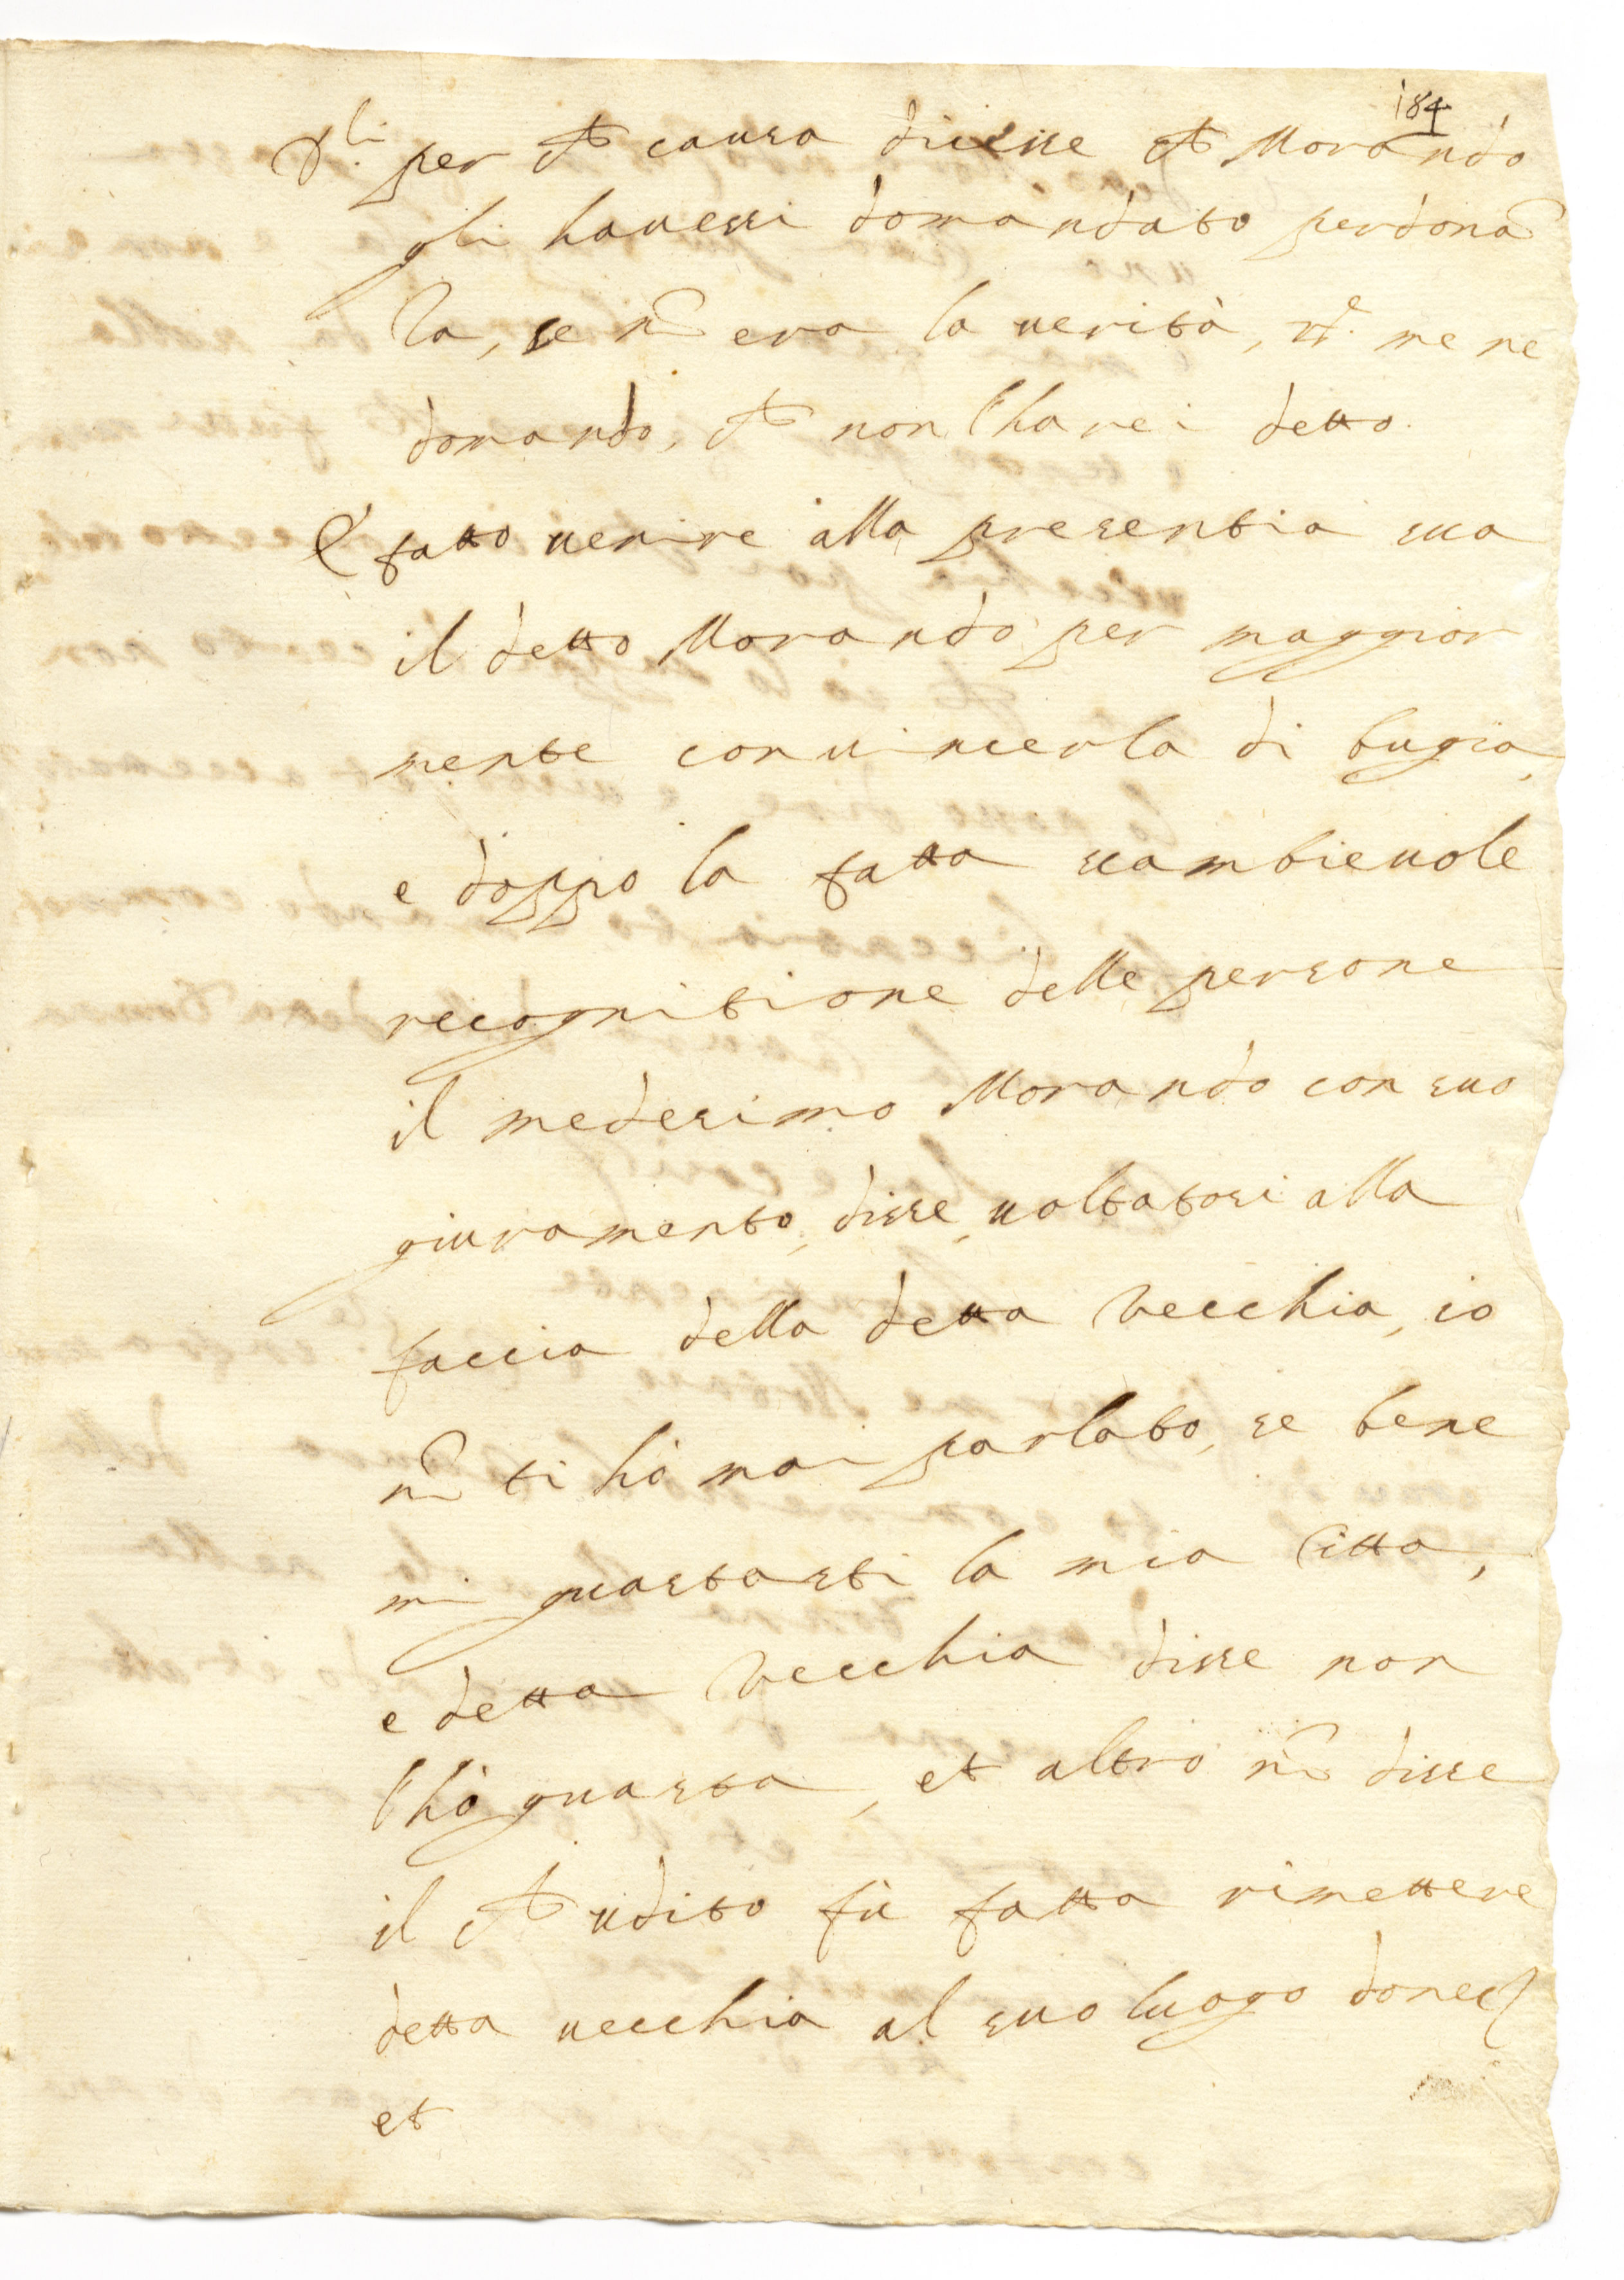 184
D.li per che causa dicesse che Morando
gli havessi domandato perdona͠
za, se no͠ era la verità, rx.e me ne
domandò, che non l'harei detto.
E fatto venire alla presentia sua
il detto Morando per maggior
mente convincerla di bugia,
e doppo la fatta scambievole
recognitione delle persone
il medesimo Morando con suo
giuramento, disse, voltatosi alla
faccia della detta vecchia, io
no͠ ti hò mai parlato, se bene
mi guastasti la mia Citta,
e detta Vecchia disse non
l'hò guasta, et altro no͠ disse
il che udito fù fatta rimettere
detta vecchia al suo luogo donec
et